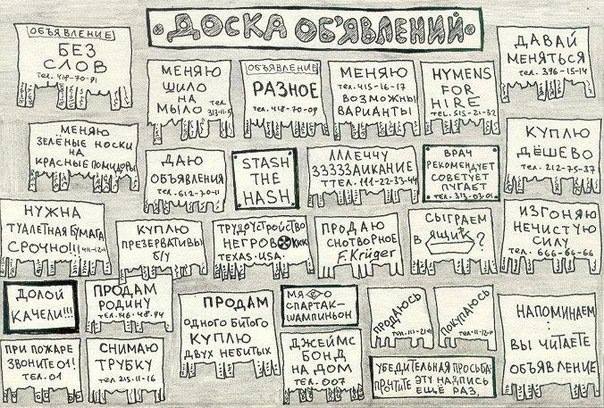 ДОСКА ОБ'ЯВЛЕНИЙ
ОБЪЯВЛЕНИЕ
БЕЗ
СЛОВ
тел. 419-70-91
МЕНЯЮ
ШИЛО
НА
МЫЛО тел.
ОБЪЯВЛЕНИЕ
РАЗНОЕ
тел. 418-70-09
МЕНЯЮ
тел. 415-16-17
ВОЗМОЖНЫ
ВАРИАНТЫ
HYMENS
FOR
HIRE
TEL. 515-21-32
ДАВАЙ
МЕНЯТЬСЯ
тел. 396-15-14
МЕНЯЮ
ЗЕЛЁНЫЕ НОСКИ
НА
КРАСНЫЕ ПОМИДОРЫ
ДАЮ
ОБЪЯВЛЕНИЯ
тел. 612-70-11
STASH
THE
HASH
ЛЛЛЕЧЧУ
ЗЗЗЗЗАИКАНИЕ
ТТЕЛ. 111-22-33-44
ВРАЧ
РЕКОМЕНДУЕТ
СОВЕТУЕТ
ПУГАЕТ
тел. 313-03-01
КУПЛЮ
ДЁШЕВО
тел. 212-75-37
НУЖНА
ТУАЛЕТНАЯ БУМАГА
СРОЧНО!!!
КУПЛЮ
ПРЕЗЕРВАТИВЫ
Б/У
ТРУДОУСТРОЙСТВО
НЕГРОВ ККК
TEXAS. USA.
ПРОДАЮ
СНОТВОРНОЕ
F. Krüger
СЫГРАЕМ
В ЯЩИК?
ИЗГОНЯЮ
НЕЧИСТУЮ
СИЛУ
тел. 666-66-66
ДОЛОЙ
КАЧЕЛИ!!!
ПРОДАМ
РОДИНУ
ТЕЛ. 416-48-94
ПРОДАМ
ОДНОГО БИТОГО
КУПЛЮ
ДВУХ НЕБИТЫХ
МЯСО
СПАРТАК-
ШАМПИНЬОН
ПРОДАЮСЬ
ПОКУПАЮСЬ
НАПОМИНАЕМ
:
ВЫ ЧИТАЕТЕ
ОБЪЯВЛЕНИЕ
ПРИ ПОЖАРЕ
ЗВОНИТЕ 01!
ТЕЛ. 01
СНИМАЮ
ТРУБКУ
ТЕЛ 215-11-16
ДЖЕЙМС
БОНД
НА ДОМ
ТЕЛ. 007
УБЕДИТЕЛЬНАЯ ПРОСЬБА:
ПРОЧТИТЕ ЭТУ НАДПИСЬ
ЕЩЁ РАЗ.